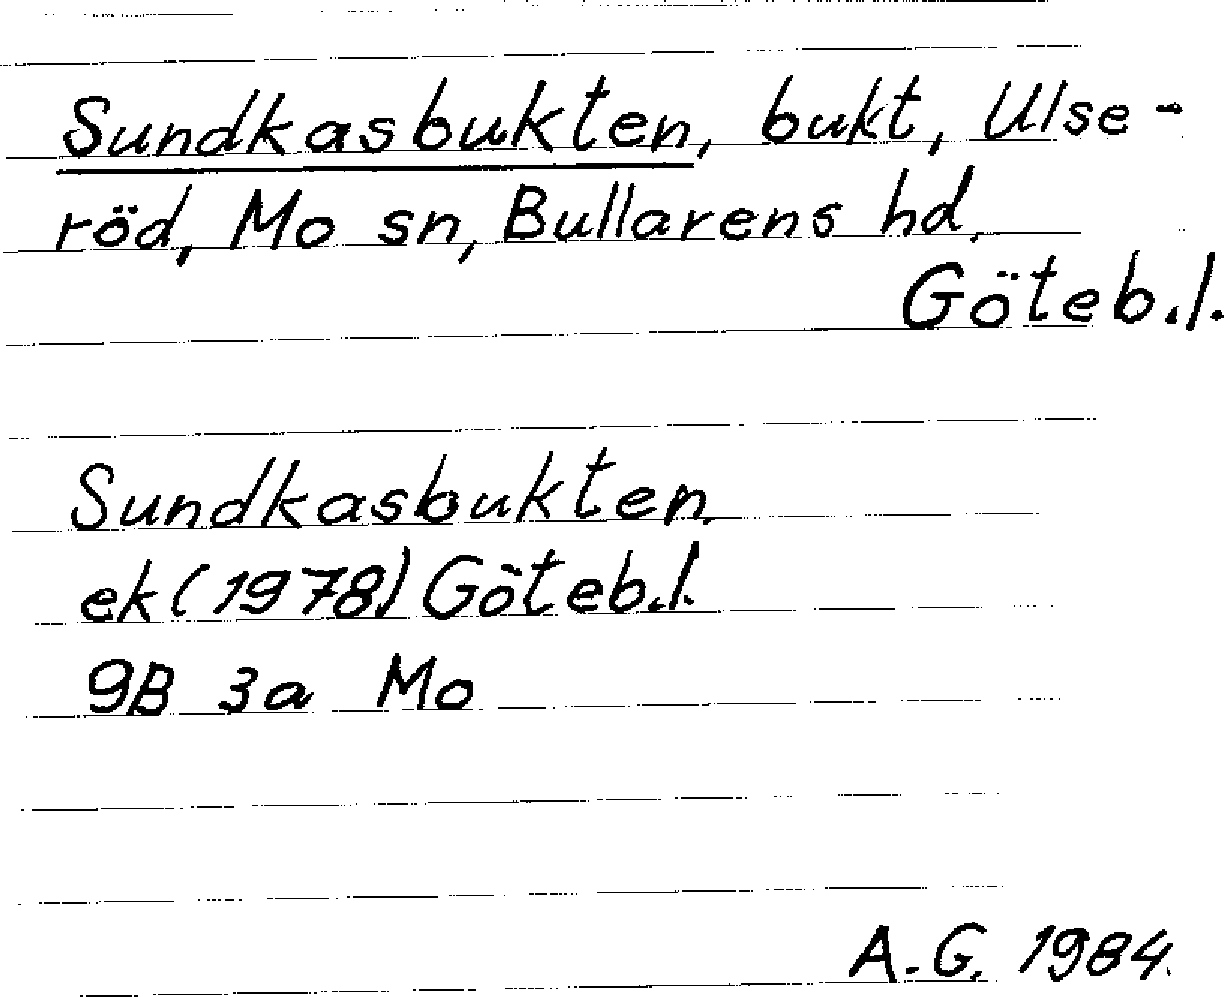 Sundkasbukten, bukt, Ulse-
röd, Mo sn, Bullarens hd,
Göteb.l.
Sundkasbukten
ek (1978) Göteb.l.
9B 3a Mo
A.G. 1984.